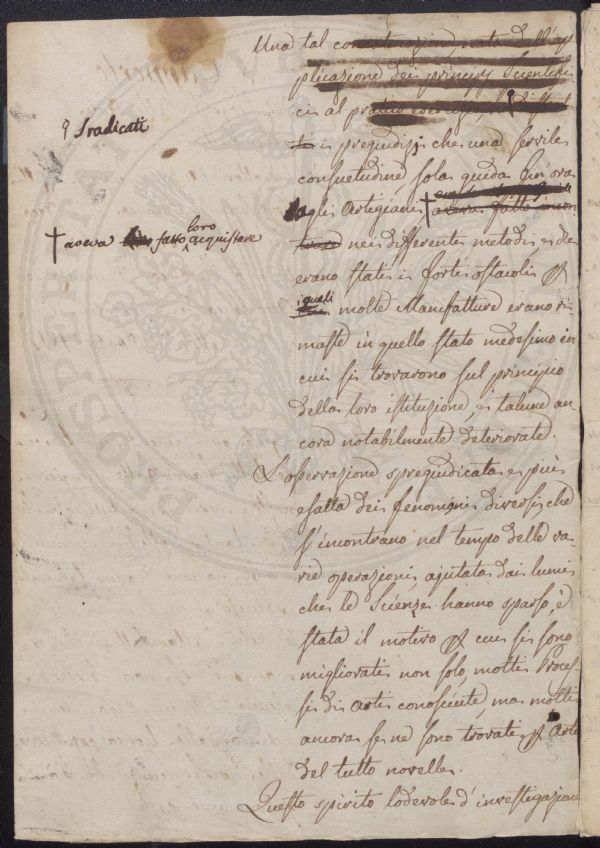 Una tal concatenazione, nata dall'ap
plicazione dei principj Scientifi
ci al pratico esercizio, ha
ϙ Sradicati
ti i pregiudizj che una servile
consuetudine, sola guida fin'ora
agli Artigiani † aveva fatto incon
† aveva fatto loro acquistare
trare nei differenti metodi, e che
erano stati i forti ostacoli &
i quali molte Manifatture erano ri
maste in quello stato medesimo in
cui si trovarono sul principio
della loro istituzione, e talune an
cora notabilmente deteriorate.
L'osservazione spregiudicata e più
esatta dei fenomeni diversi che
s'incontrano nel tempo delle va
rie operazioni, ajutata dai lumi
che le Scienze hanno sparso, è
stata il motivo & cui si sono
migliorati non solo, molti Proces
si di Arti conosciute, ma molti
ancora se ne sono trovati & Arti
del tutto novelle.
Questo spirito lodevole d'investigazione